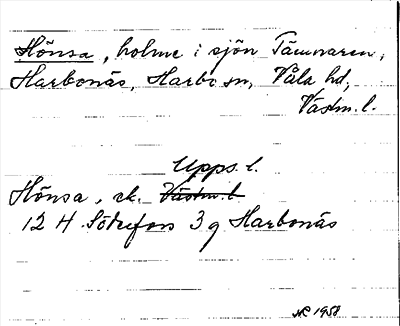 Hönsa, holme i sjön Tämnaren,
Harbonäs, Harbo sn, Våla hd,
Västm. l.
Upps. l.
Hönsa, ek. Västm. l
12 H Söderfors 3 g Harbonäs
1958